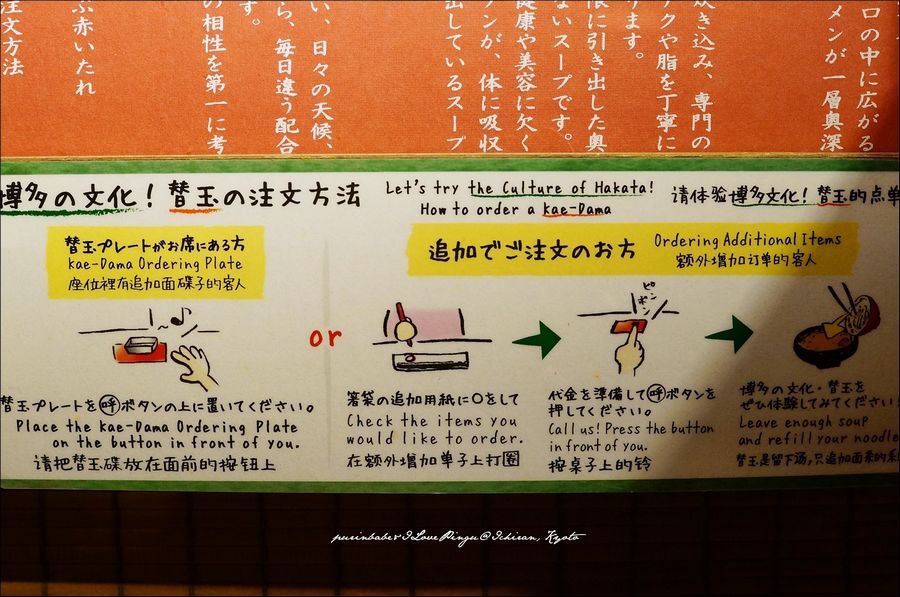 ロの中に広がる
メンが一層奥深
炊き込み、専門の
アクや脂を丁寧に
ります。
限に引き出した奥
ないスープです。
健康や美容に欠く
ゲンが、体に吸収
出しているスープ
い、日々の天候、
ら、毎日違う配合
す。
の相性を第一に考
ぶ赤いたれ
注文方法
博多の文化！替玉の注文方法
Let's try the Culture of Hakata!
How to order a Kae-Dama
请体验博多文化！替玉的点单
替玉プレートがお席にある方
Kae-Dama Ordering Plate
座位裡有追加面碟子的客人
追加でご注文のお方
Ordering Additional Items
额外增加订单的客人
or
ピンポン
替玉プレートを呼ボタンの上に置いてください。
Place the Kae-Dama Ordering Plate
on the button in front of you.
请把替玉碟放在面前的按钮上
箸袋の追加用紙に○をして
Check the items you
would like to order.
在额外增加单子上打圈
代金を準備して呼ボタンを
押してください。
Call us! Press the button
in front of you.
按桌子上的铃
博多の文化・替玉を
ぜひ体験してみてください！
Leave enough soup
and refill your noodle
替玉是留下汤,只追加面来的系
purinbaber I Love Pingu @ Ichiran, Kyoto